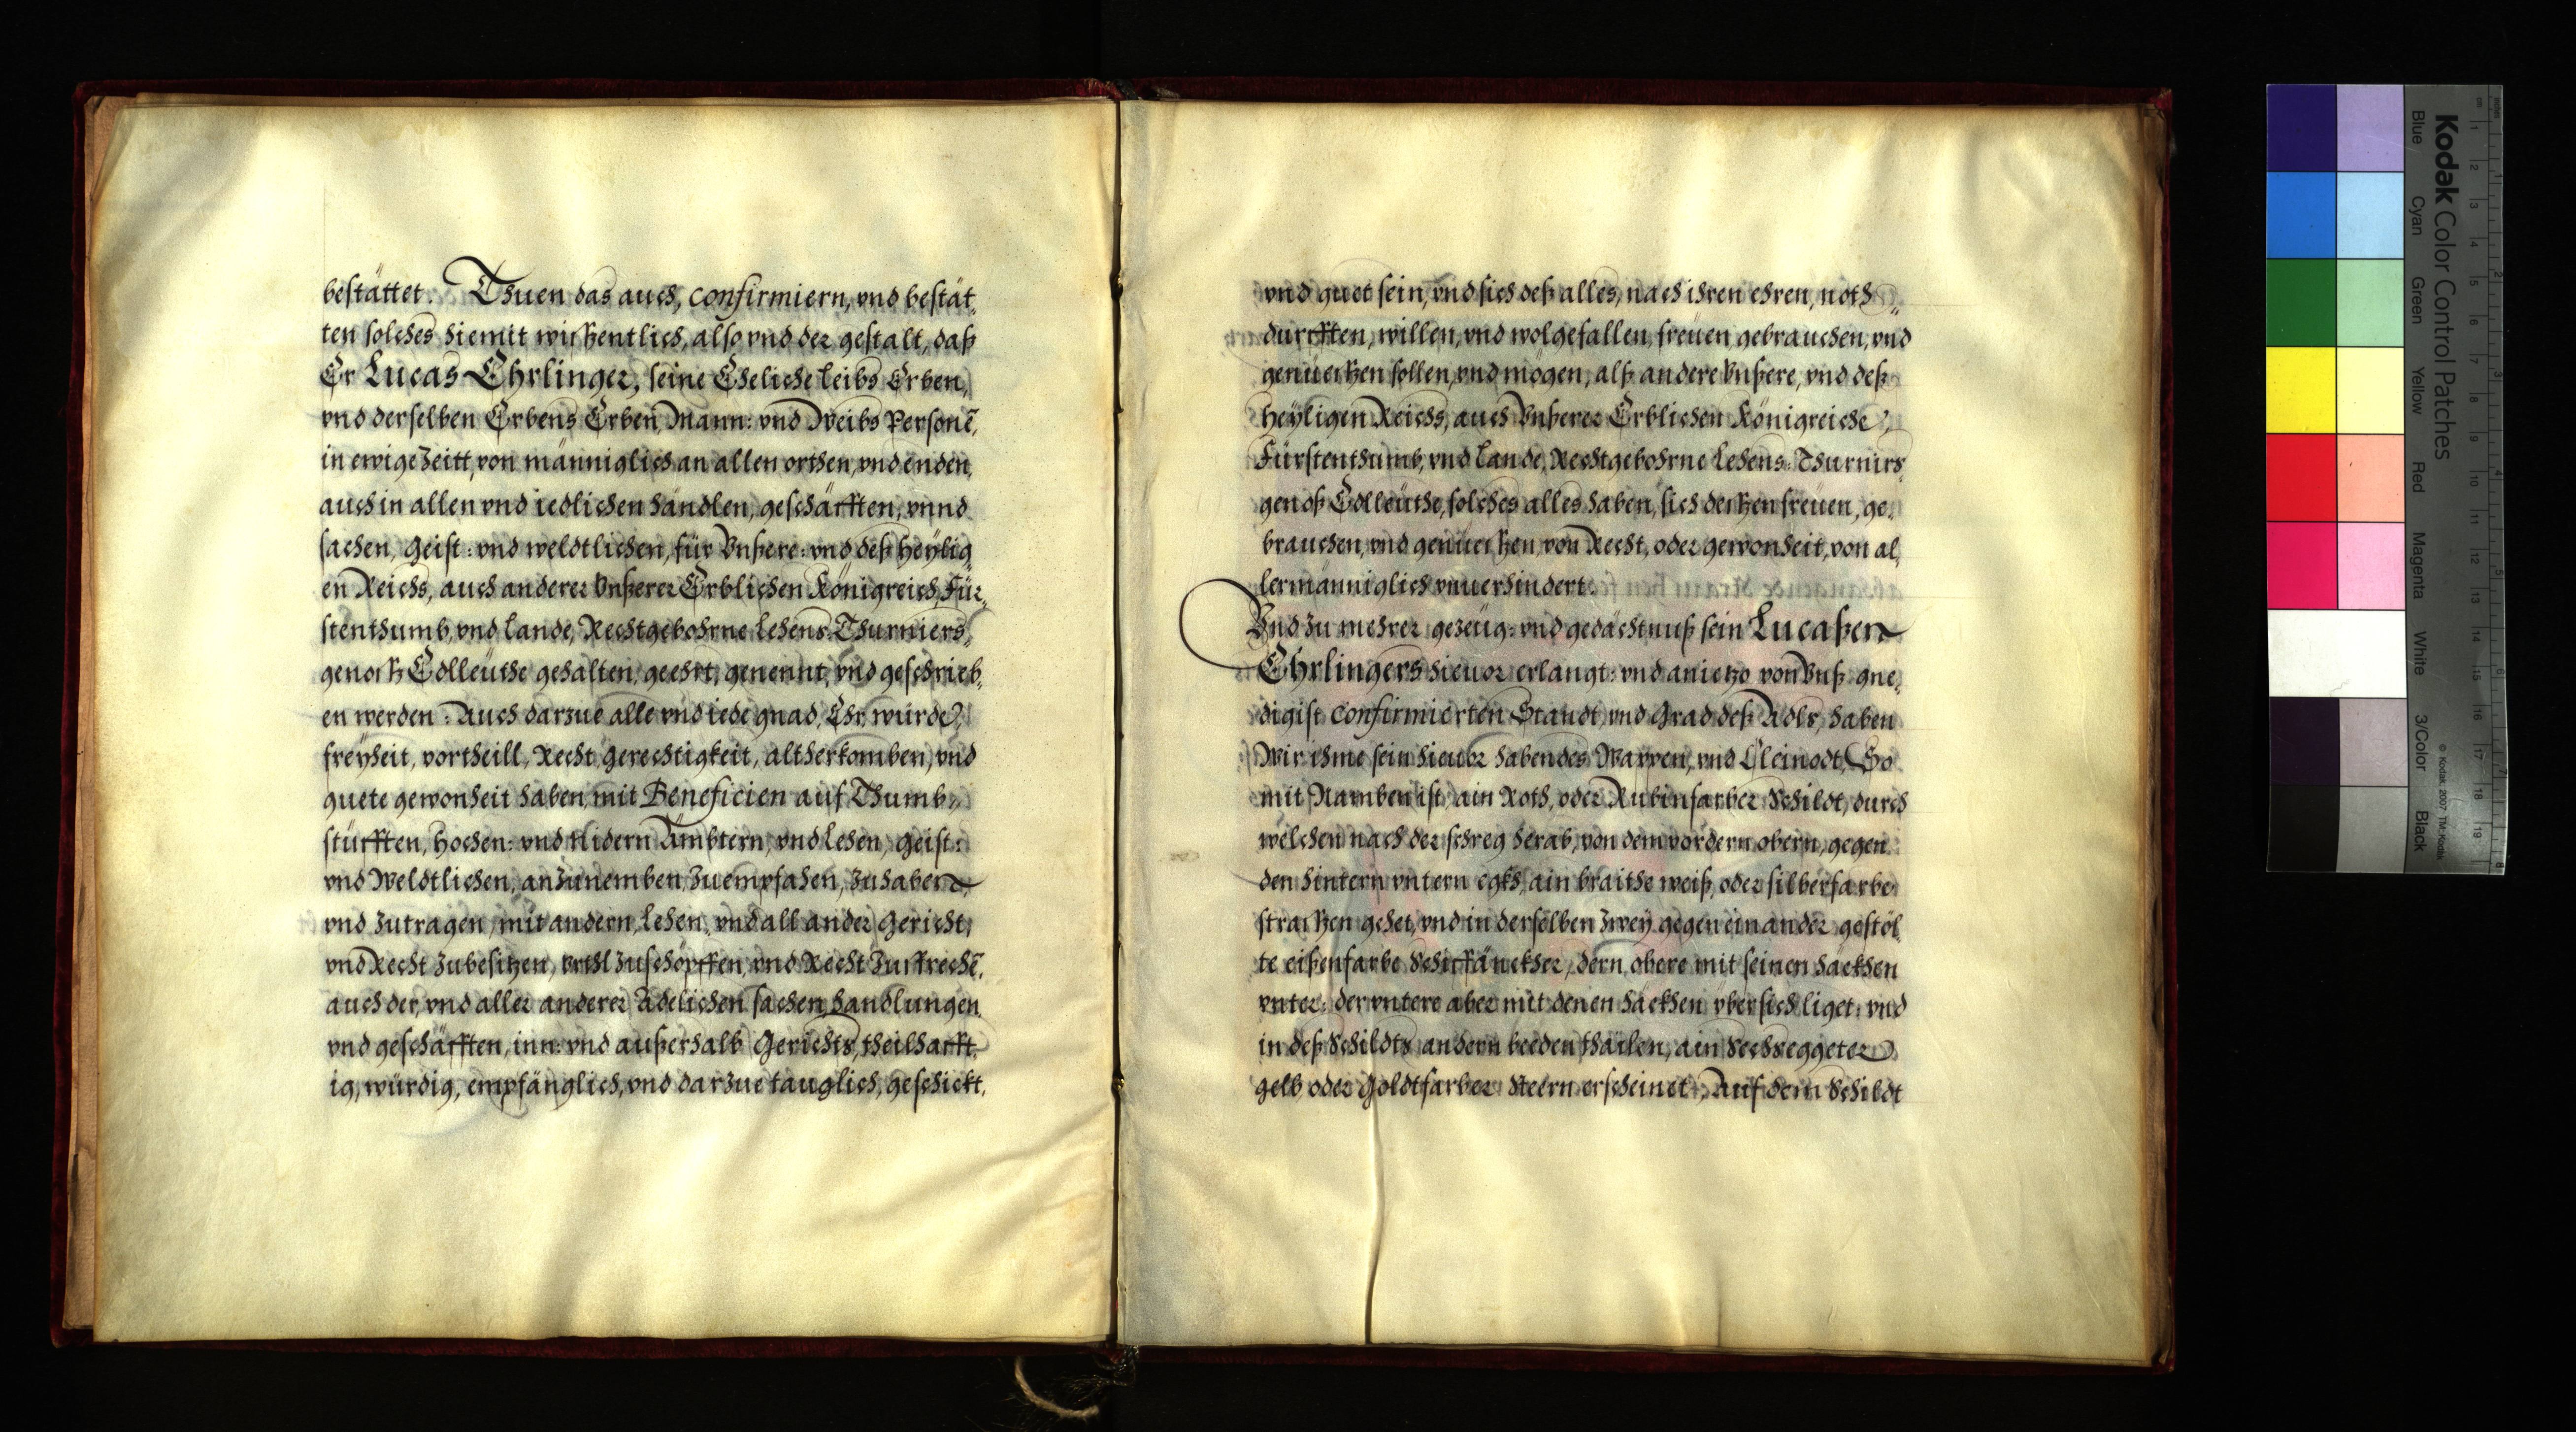 bestättet. Thuen das auch, confirmiern, vnd bestät,
ten solches hiemit wißentlich, also vnd der gestalt, daß
Er Lucas Ehrlinger, seine Eheliche leibs Erben,
vnd derselben Erbens Erben, Mann: vnd Weibs Personē,
in ewige Zeitt, von männiglich an allen orthen, vnd enden,
auch in allen vnd iedlichen händlen, geschäfften, vnnd
sachen, Geist: vnd weldtlichen, für Vnßere: vnd deß Heÿlig,
en Reichs, auch anderer Vnßerer Erblichen Königreich, Für,
stenthumb, vnd Lande, Rechtgebohrne Lehens Thurniers,
genoß Edlleüthe gehalten, geehrt, genennt, vnd geschrieb,
en werden: Auch darzue alle vnd iede gnad, Ehr, würde,
freÿheit, vortheill, Recht, Gerechtigkeit, altherkomben, vnd
guete gewonheit haben, mit Beneficien auf Thumb,,
stüfften, Hochen: vnd Nidern Ämbtern, vnd Lehen, Geist:
vnd Weldtlichen, anzunemben, zuempfahen, zuhaben,
vnd zutragen, mit andern, Lehen, vnd all ander Gericht,
vnd Recht zubesitzen, vrthl zuschöpffen, vnd Recht zusprechē,
auch der, vnd aller anderer Adelichen sachen, handlungen,
vnd geschäfften, inn: vnd außerhalb Gerichts, theilhafft,
ig, würdig, empfänglich, vnd darzue tauglich, geschickt,
vnd guet sein, vnd sich deß alles, nach ihren ehren, noth,,
durfften, willen, vnd wolgefallen, freüen gebrauchen, vnd
genüeßen sollen, vnd mögen, alß andere Vnßere, vnd deß
Heÿligen Reichs, auch Vnßerer Erblichen Königreiche,
Fürstenthumb, vnd Lande, Rechtgebohrne Lehens: Thurnirs
genoß Edlleüthe, solches alles haben, sich deßen freüen, ge,
brauchen, vnd genüeßen, von Recht, oder gewonheit, von al,
lermänniglich vnuerhindert.
Vnd zu mehrer gezeüg: vnd gedächtnuß sein Lucaßen
Ehrlingers hieuor erlangt: vnd anietzo von Vnß gne,
digist confirmierten Standt, vnd Grad deß Adls, haben
Wir ihme sein hieuor habendes Wappen, vnd Cleinodt, So
mit Namben ist, ain Roth, oder Rubinfarber Schildt, durch
welchen nach der schreg herab, von dem vordern obern, gegen
den hintern vntern egkh, ain braithe weiß, oder silberfarbe
straßen gehet, vnd in derselben zweÿ gegen einander gestöl,
te eißenfarbe Schiffänckher, dern obere mit seinen hackhen
vnter: der vntere aber mit denen häckhen übersich liget: vnd
in deß Schildts andern beeden thailen, ain Sechseggeter
gelb, oder Goldtfarber Stern erscheinet; Auf dem Schildt